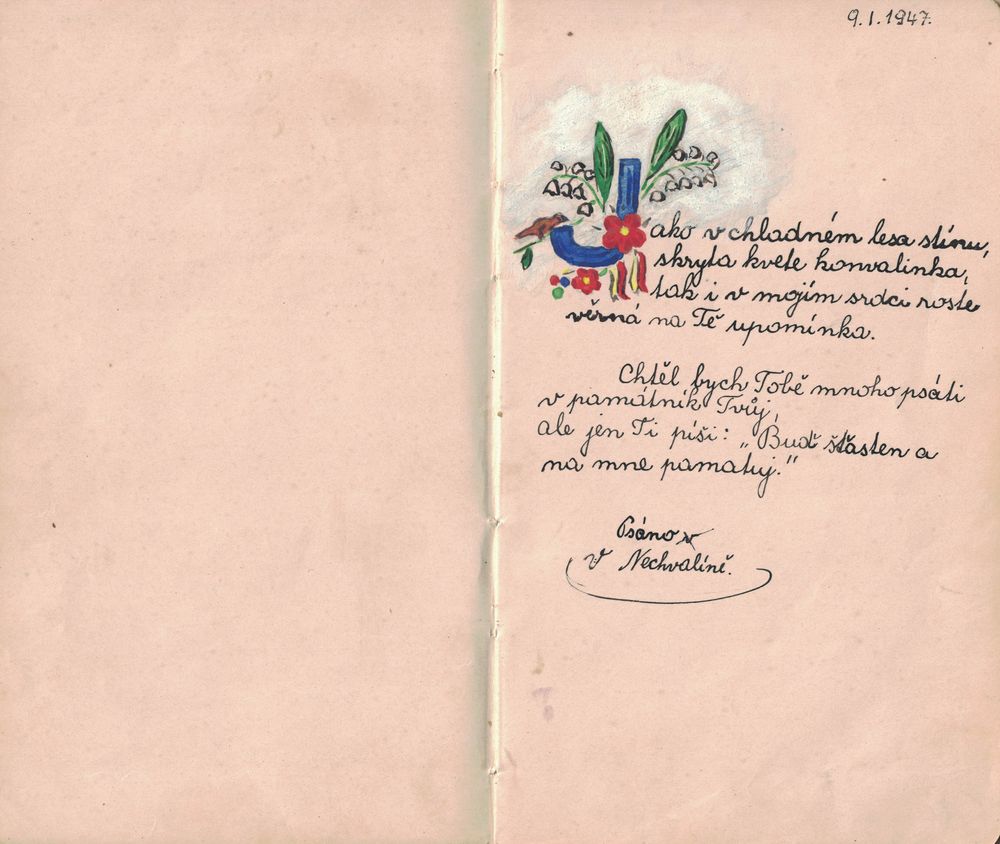 9.I.1947.
Jako v chladném lesa stínu,
skryta kvete konvalinka,
tak i v mojím srdci roste
věrná na Tě upomínka.
Chtěl bych Tobě mnoho psáti
v památník Tvůj,
ale jen Ti píši: „Buď šťasten a
na mne pamatuj."
Psáno v
v Nechvalíně.